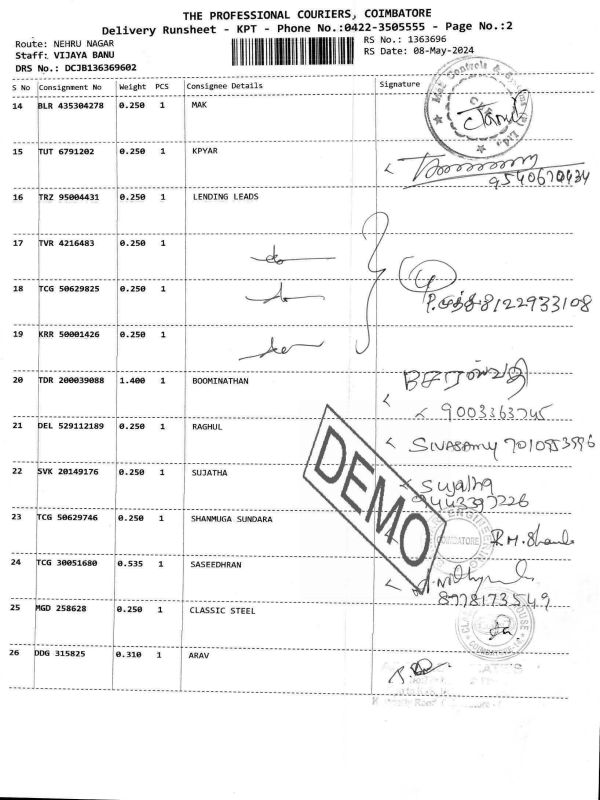 THE PROFESSIONAL COURIERS, COIMBATORE
Delivery Runsheet - KPT - Phone No.:0422-3505555 - Page No.:2
Route: NEHRU NAGAR
Staff: VIJAYA BANU
DRS No.: DCJB136369602
RS No.: 1363696
RS Date: 08-May-2024
S No Consignment No Weight PCS Consignee Details Signature
14 BLR 435304278 0.250 1 MAK
15 TUT 6791202 0.250 1 KPYAR
16 TRZ 95004431 0.250 1 LENDING LEADS
17 TVR 4216483 0.250 1 do
18 TCG 50629825 0.250 1 do
8122933108
19 KRR 50001426 0.250 1
20 TDR 200039088 1.400 1 BOOMINATHAN
9003363745
21 DEL 529112189 0.250 1 RAGHUL
SIVASAMY
22 SVK 20149176 0.250 1 SUJATHA Sujatha
23 TCG 50629746 0.250 1 SHANMUGA SUNDARA
COIMBATORE
24 TCG 30051680 0.535 1 SASEEDHRAN
8778173549
25 MGD 258628 0.250 1 CLASSIC STEEL
26 DDG 315825 0.310 1 ARAV
DEMO